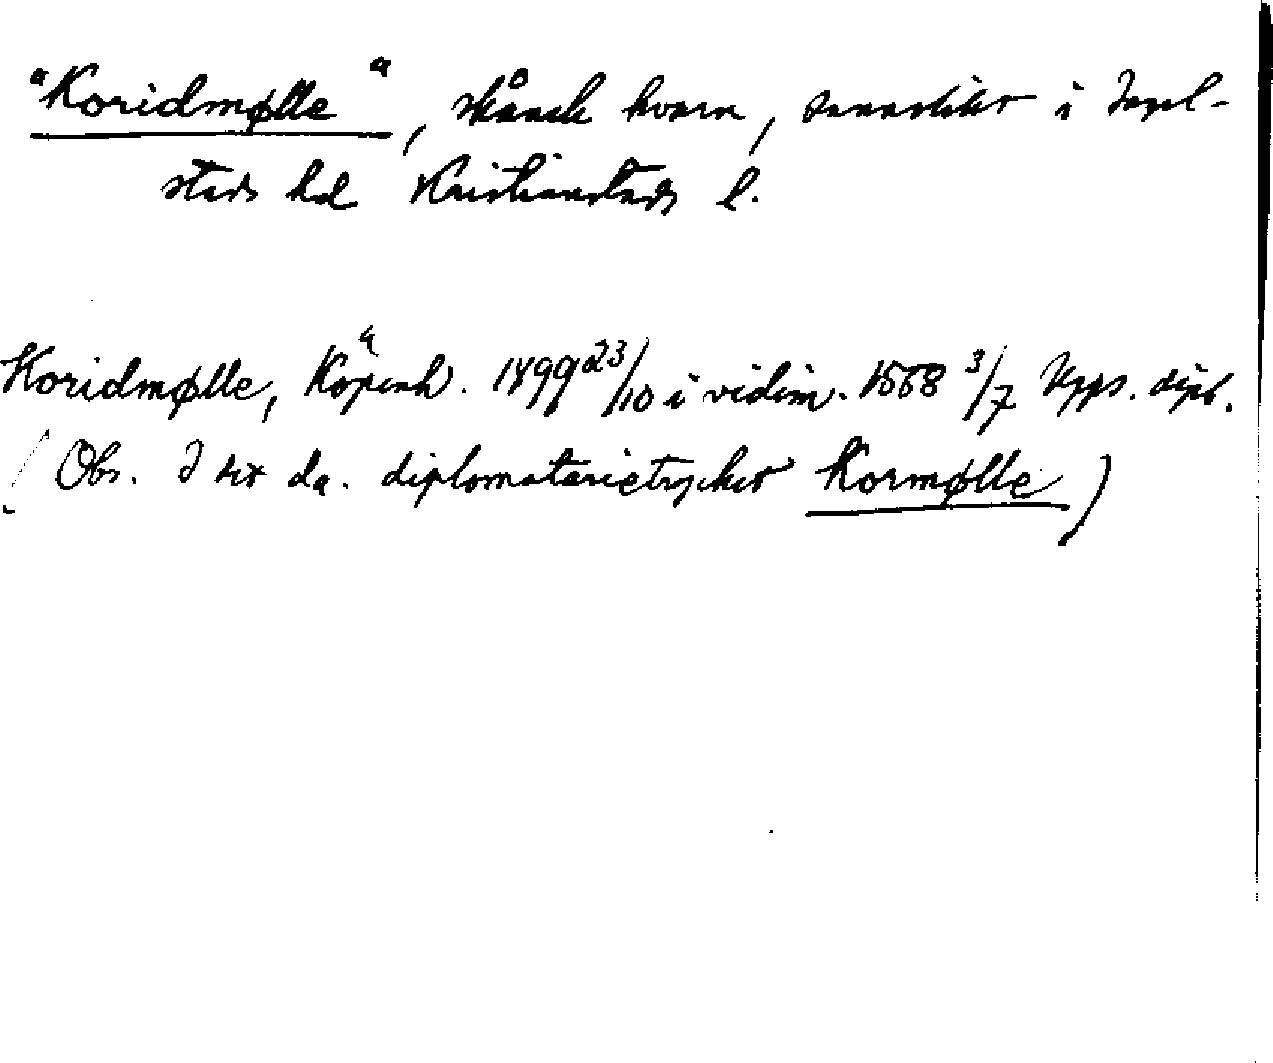 "Koridmølle", skånsk kvarn, sannolikt i Ingel-
stads hd Kristianstads l.
Koridmølle, Köpenh. 1499 23/10 i vidim. 1568 3/7 Upps. dipl.
(Obs. I det da. diplomatarietrycket Kormølle)